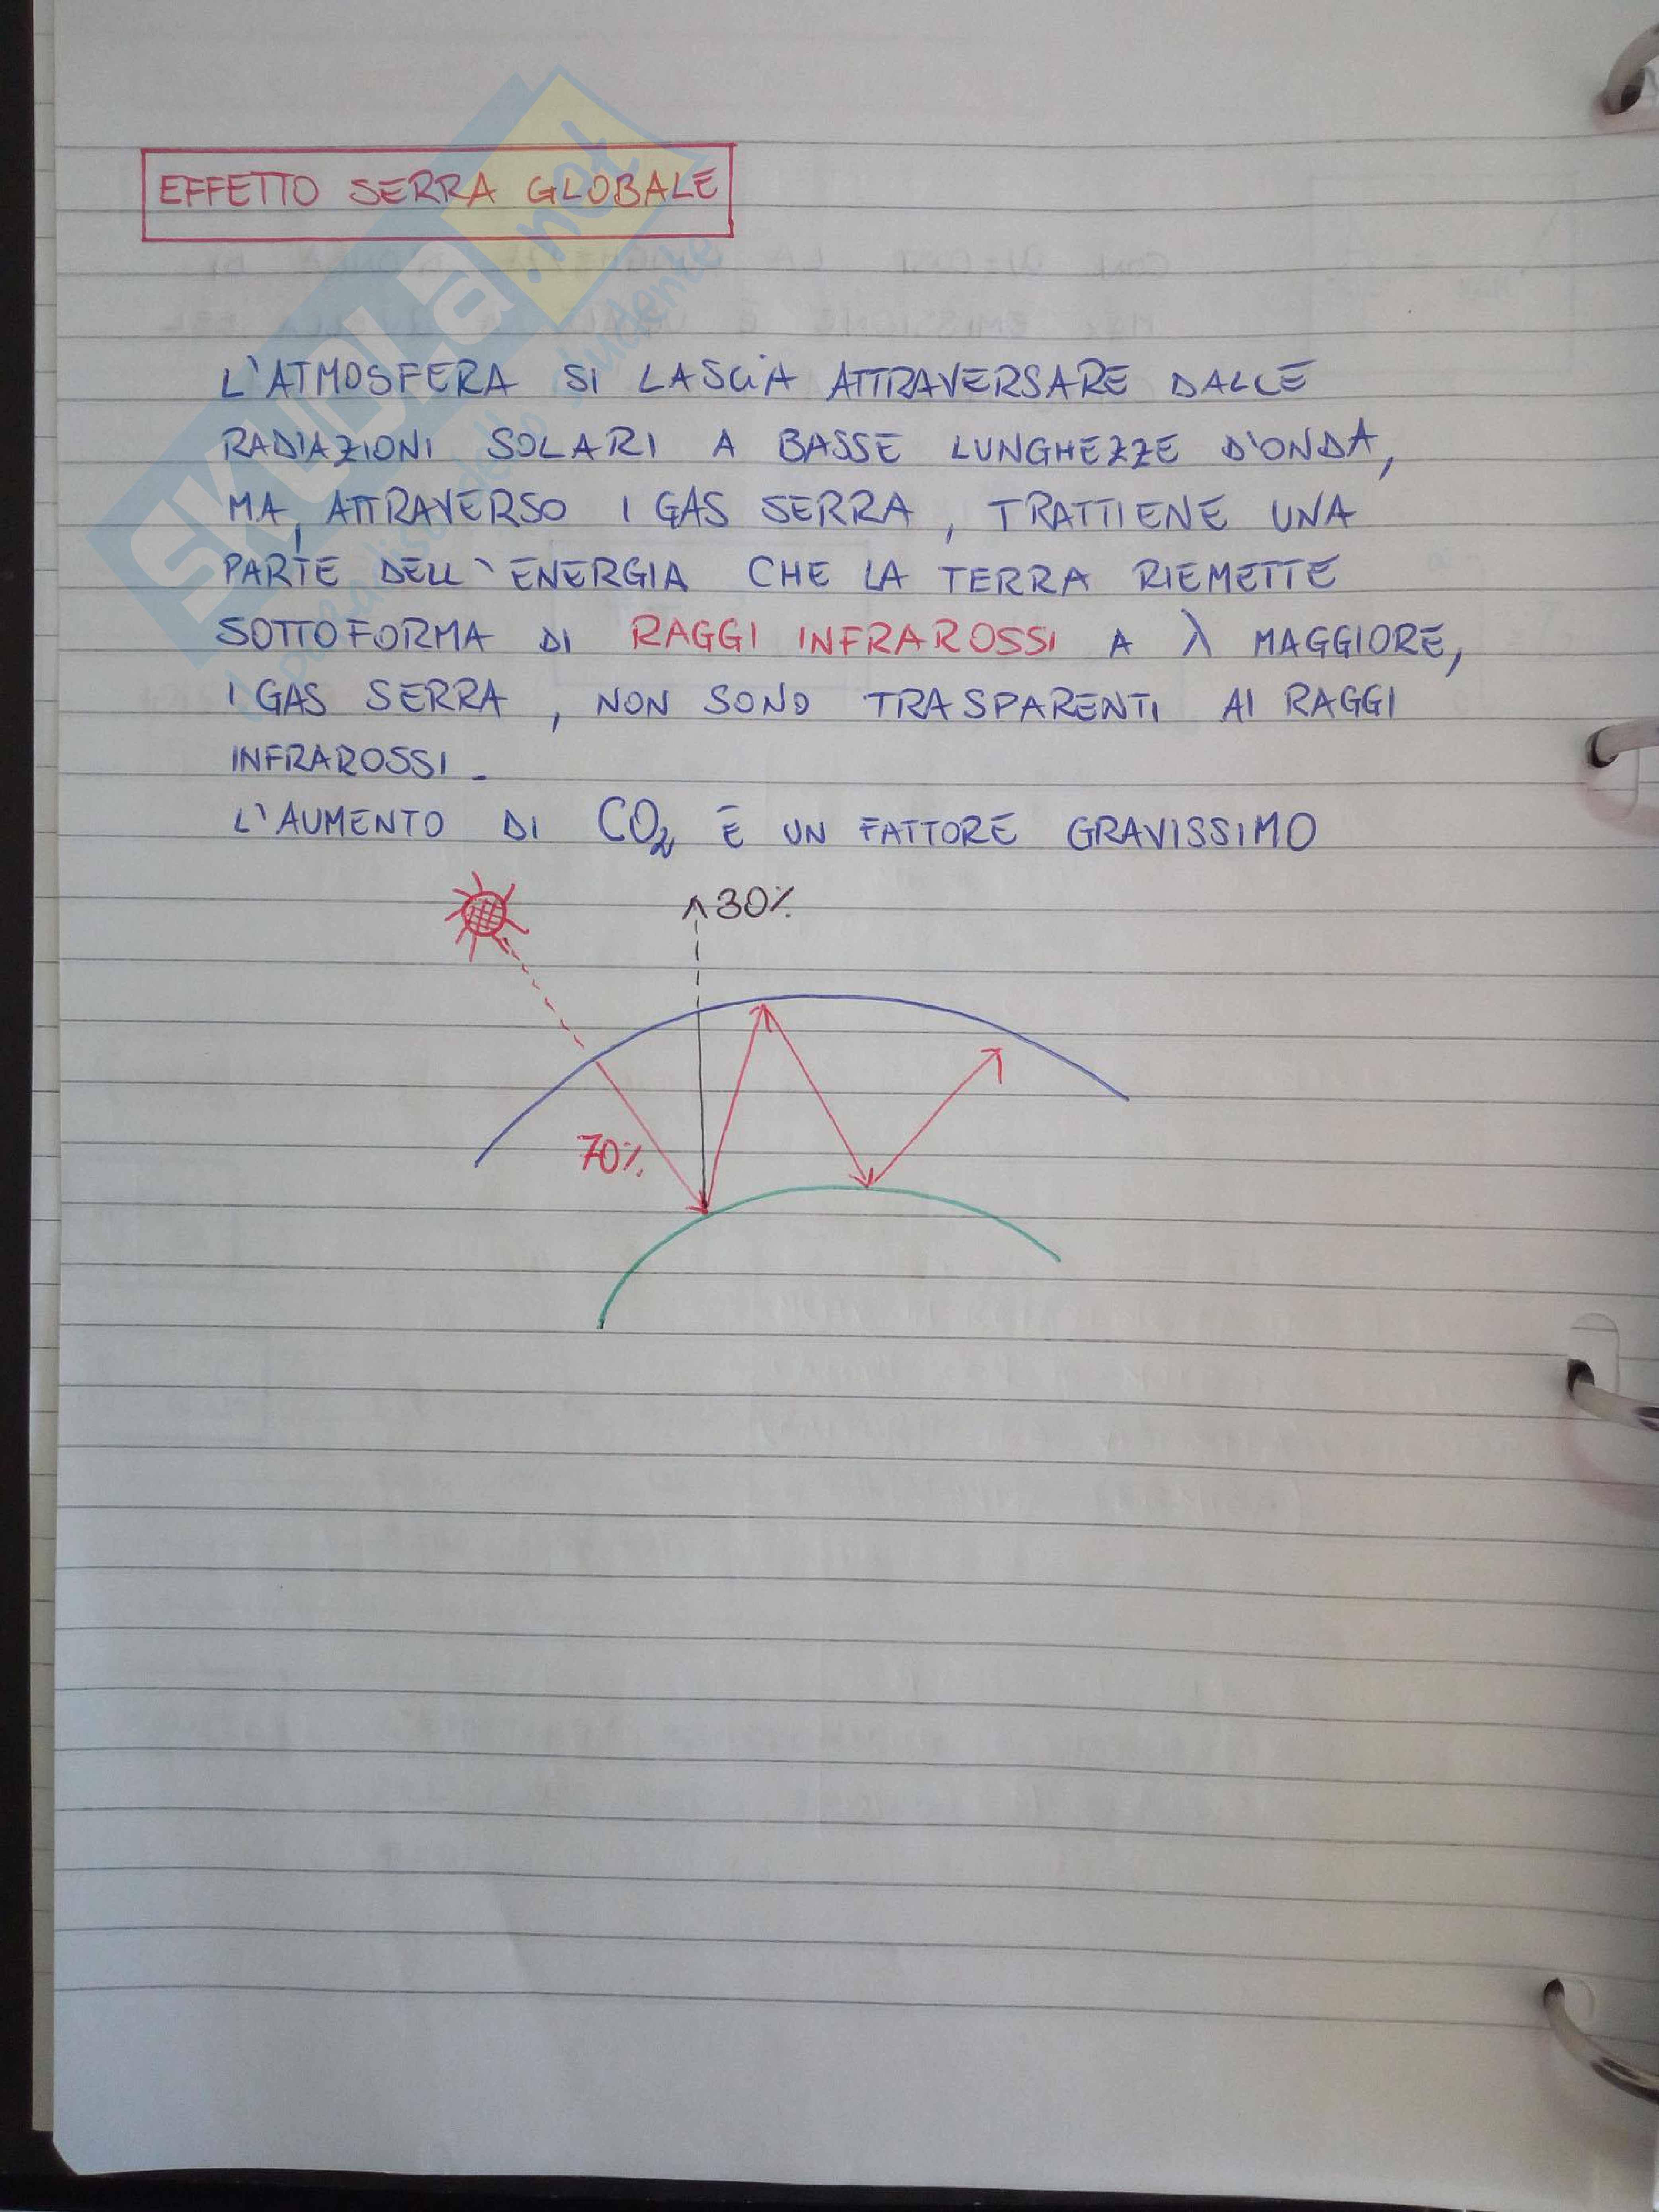 EFFETTO SERRA GLOBALE
SKUOLa.net
il paradiso dello studente
L'ATMOSFERA SI LASCIA ATTRAVERSARE DALLE
RADIAZIONI SOLARI A BASSE LUNGHEZZE D'ONDA,
MA, ATTRAVERSO I GAS SERRA, TRATTIENE UNA
PARTE DELL'ENERGIA CHE LA TERRA RIEMETTE
SOTTOFORMA DI RAGGI INFRAROSSI A λ MAGGIORE,
I GAS SERRA, NON SONO TRASPARENTI AI RAGGI
INFRAROSSI.
L'AUMENTO DI CO2 È UN FATTORE GRAVISSIMO
30%
70%